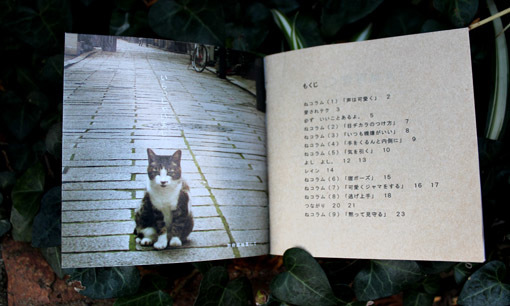 もくじ
ねコラム(1)「実は可愛く」 2
愛されテク 3
必ず いいことあるよ、 5
ねコラム(2)「目ヂカラのつけ方」 7
ねコラム(3)「いつも機嫌がいい」 8
ねコラム(4)「手をくるんと内側に」 9
ねコラム(5)「気を引く」 10
よし よし、 12 13
レイン 14
ねコラム(6)「寝ポーズ」 15
ねコラム(7)「可愛くジャマをする」 16 17
ねコラム(8)「逃げ上手」 18
つながり 20 21
ねコラム(9)「黙って見守る」 23